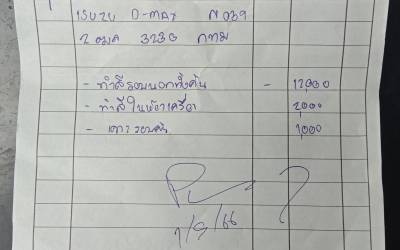 ISUZU D-MAX ผ 039
2 ฒมค 3230 กทม
- ทำสีรอบนอกทั้งคัน - 12,000
- ทำสีในห้องเครื่อง 2,000
- เคาะรอบคัน 1,000
7/9/66